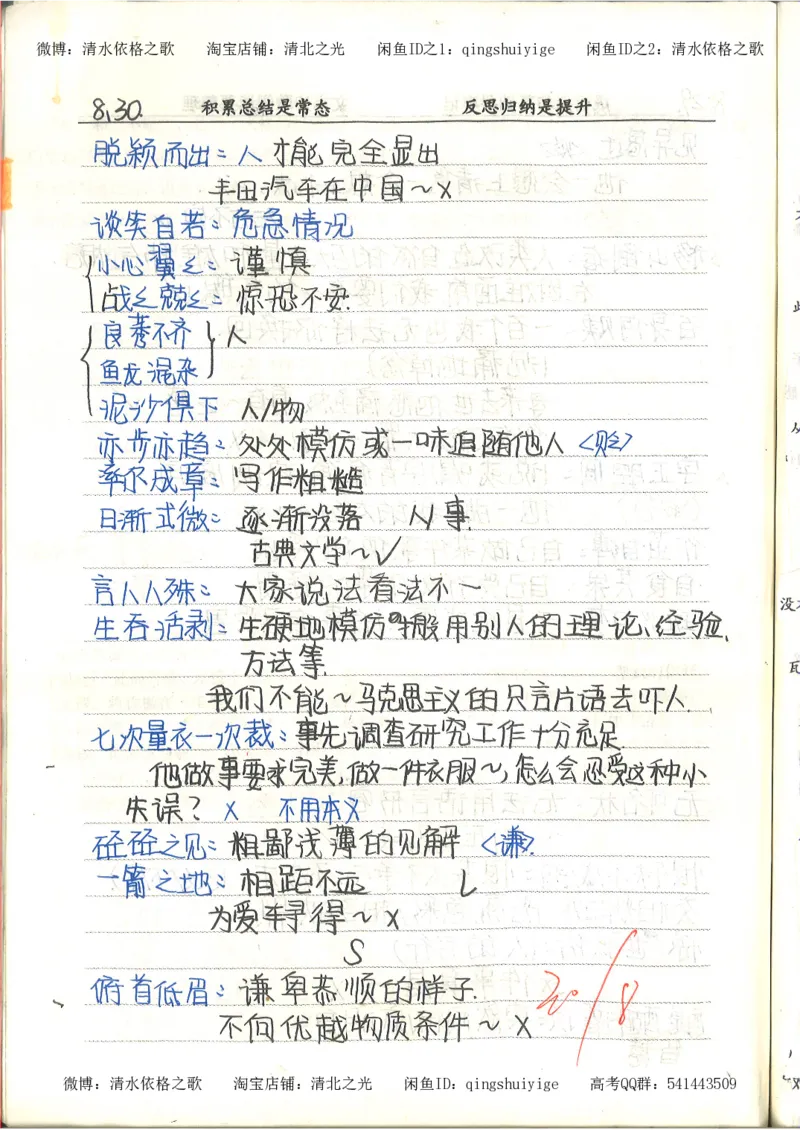 微博：清水依格之歌 淘宝店铺：清北之光 闲鱼ID之1：qingshuiyige 闲鱼ID之2：清水依格之歌
8.30. 积累总结是常态 反思归纳是提升
脱颖而出：人才能完全显出
丰田汽车在中国～×
谈笑自若：危急情况
小心翼々：谨慎
战々兢々：惊恐不安
良莠不齐 人
鱼龙混杂
泥沙俱下 人/物
亦步亦趋：处处模仿或一味追随他人〈贬〉
率尔成章：写作粗糙
日渐式微：逐渐没落 人/事
古典文学～✓
言人人殊：大家说法看法不一
生吞活剥：生硬地模仿搬用别人的理论、经验、
方法等.
我们不能～马克思主义的只言片语去吓人.
七次量衣一次裁：事先调查研究工作十分充足
他做事要求完美,做一件衣服～,怎么会忍受这种小
失误？ × 不用本义
硁硁之见：粗鄙浅薄的见解〈谦〉
一箭之地：相距不远 L
为爱车寻得～×
S
俯首低眉：谦卑恭顺的样子.
不向优越物质条件～×
30/8
微博：清水依格之歌 淘宝店铺：清北之光 闲鱼ID：qingshuiyige 高考QQ群：541443509